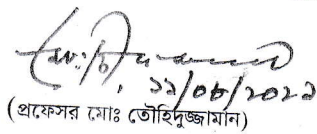 ২২/০৮/২০২২
(প্রফেসর মোঃ তৌহিদুজ্জামান)